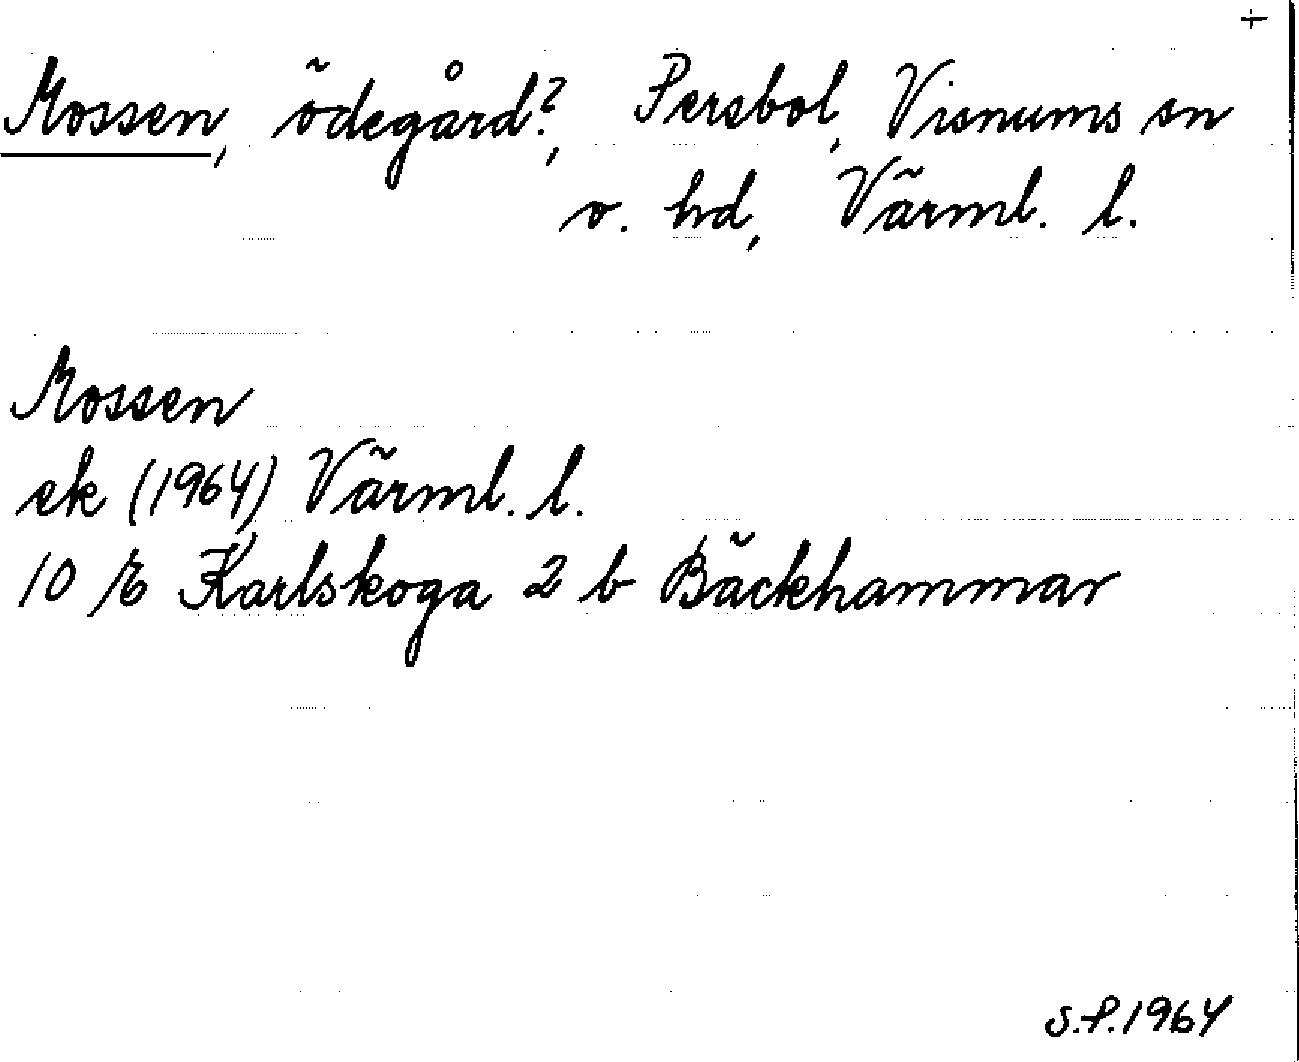 +
Mossen, ödegård?, Persbol, Visnums sn
o. hd, Värml. l.
Mossen
ek (1964) Värml. l.
10 E Karlskoga 2 b Bäckhammar
S.P. 1964